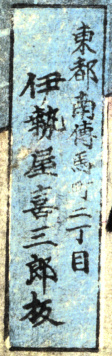 東都南傳馬町二丁目
伊勢屋喜三郎板